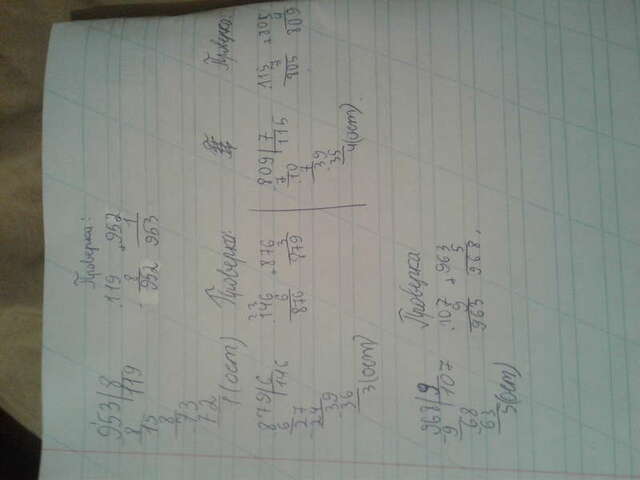 Проверка:
953|8 .119 +952
8 119 8 1
15 952 953
8
73
72
1(ост) Проверка: Проверка:
879|6 .146 +876 809|7 .115 +805
6 146 6 3 7 115 7
27 876 879 10 805 809
24 7
39 39
36 35
3(ост) 4(ост)
968|9 Проверка
9 107 .107 +963
68 9 5
63 963 968
5(ост)